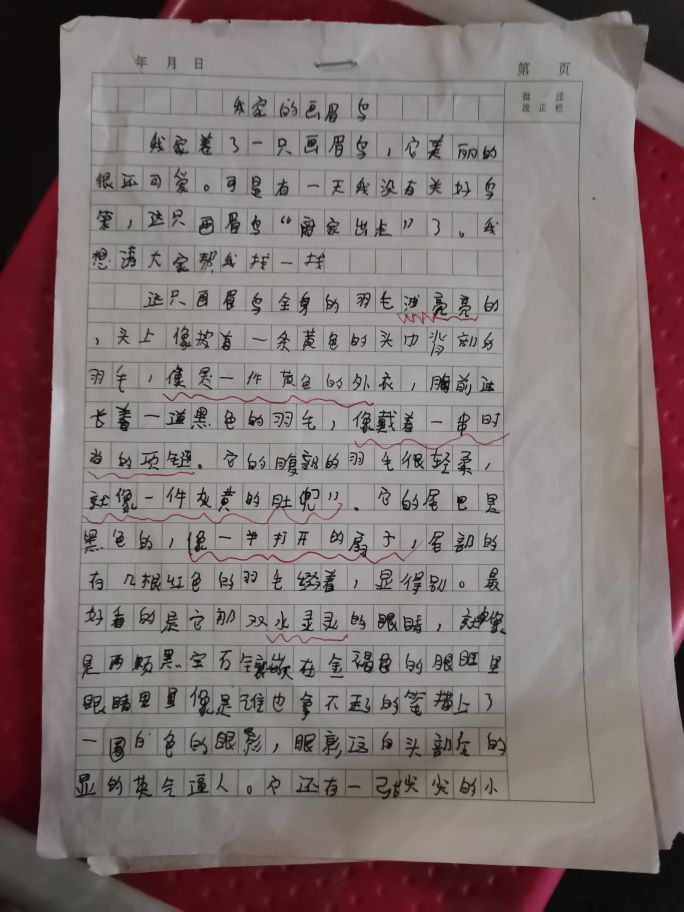 年 月 日
第 页
批 注
改 正 栏
我家的画眉鸟
我家养了一只画眉鸟，它美丽的
很还可爱。可是有一天我没有关好鸟
笼，这只画眉鸟“离家出走”了。我
想请大家帮我找一找
这只画眉鸟全身的羽毛油亮亮的
，头上像披着一条黄色的头巾背部的
羽毛，像是一件黄色的外衣，胸前还
长着一道黑色的羽毛，像戴着一串时
尚的项链。它的腹部的羽毛很轻柔，
就像一件灰黄的肚兜。它的尾巴是
黑色的，像一半打开的扇子，尾部的
有几根红色的羽毛 着，显得别。最
好看的是它那双水灵灵的眼睛，就像
是两颗黑宝石镶嵌在金褐色的眼眶里
眼睛里 像是谁也拿不起的笔描上了
一圈白色的眼影，眼影 白头部 的
显的英气逼人。它还有一 尖尖的小